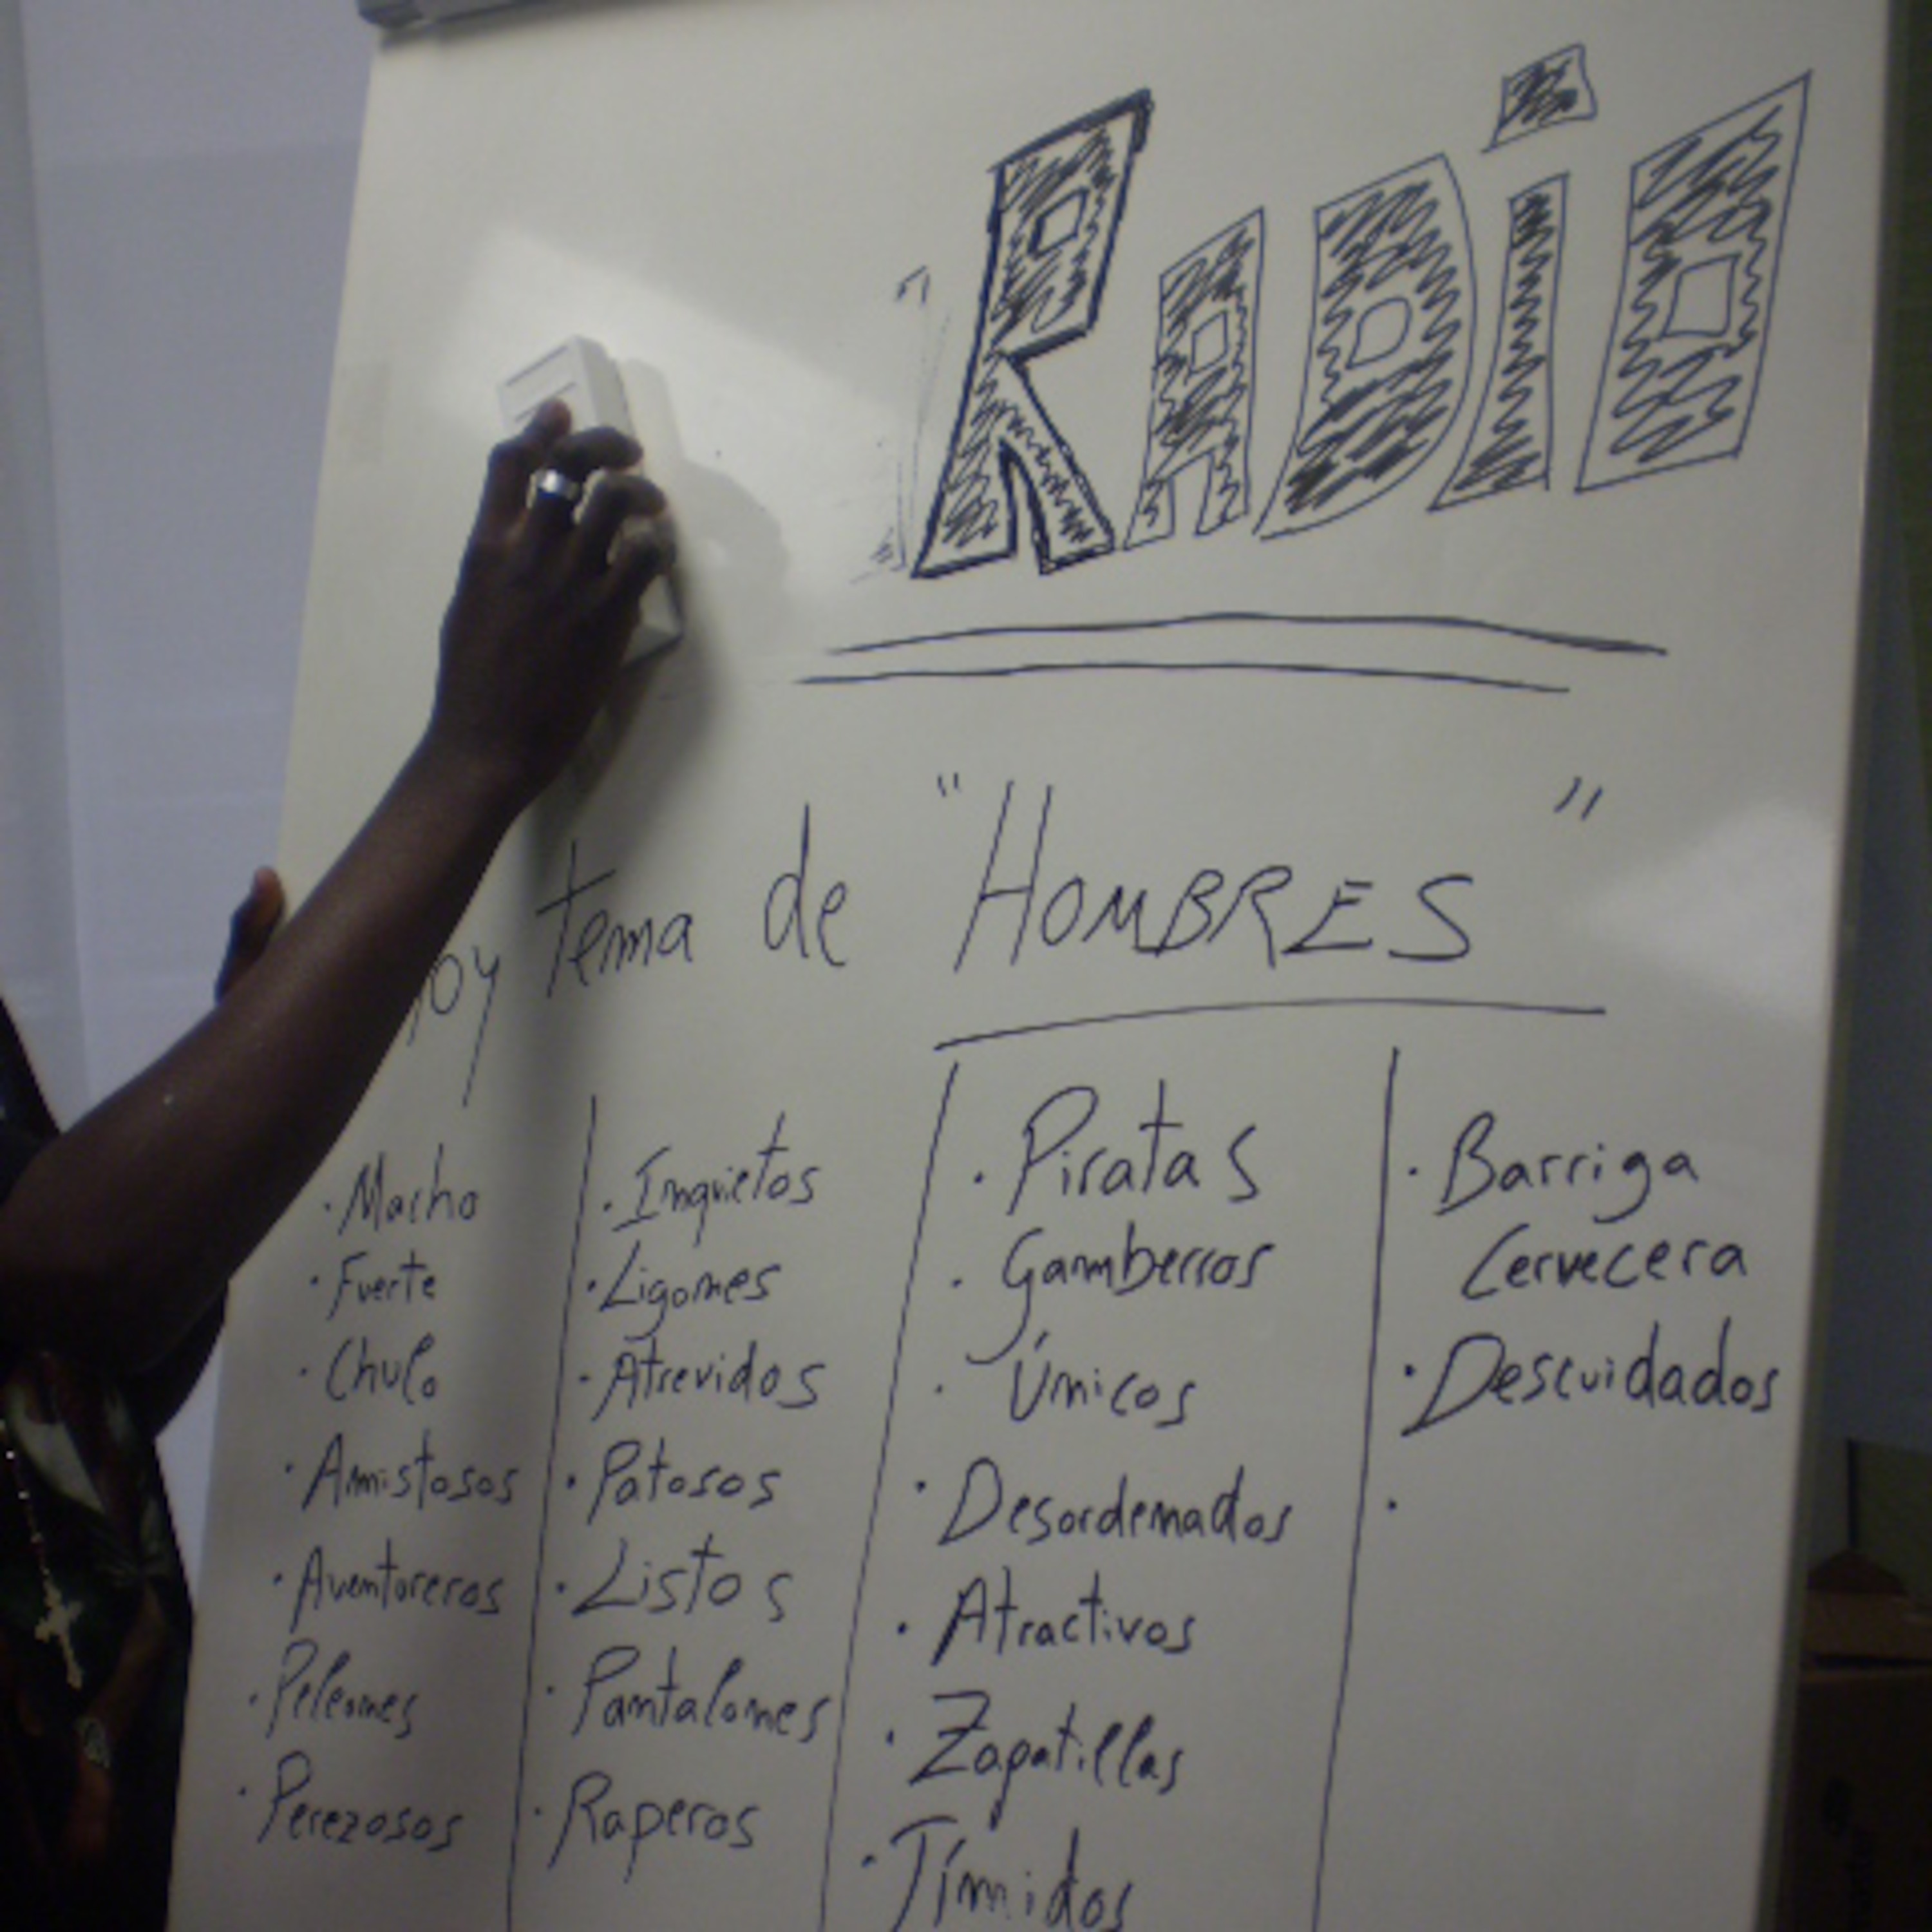 RADiO
Hoy tema de "HOMBRES"
· Macho
· Fuerte
· Chulo
· Amistosos
· Aventoreros
· Peleones
· Perezosos
· Inquietos
· Ligones
· Atrevidos
· Patosos
· Listos
· Pantalones
· Raperos
· Piratas
· Gamberros
· Únicos
· Desordenados
· Atractivos
· Zapatillas
· Tímidos
· Barriga
Cervecera
· Descuidados
·